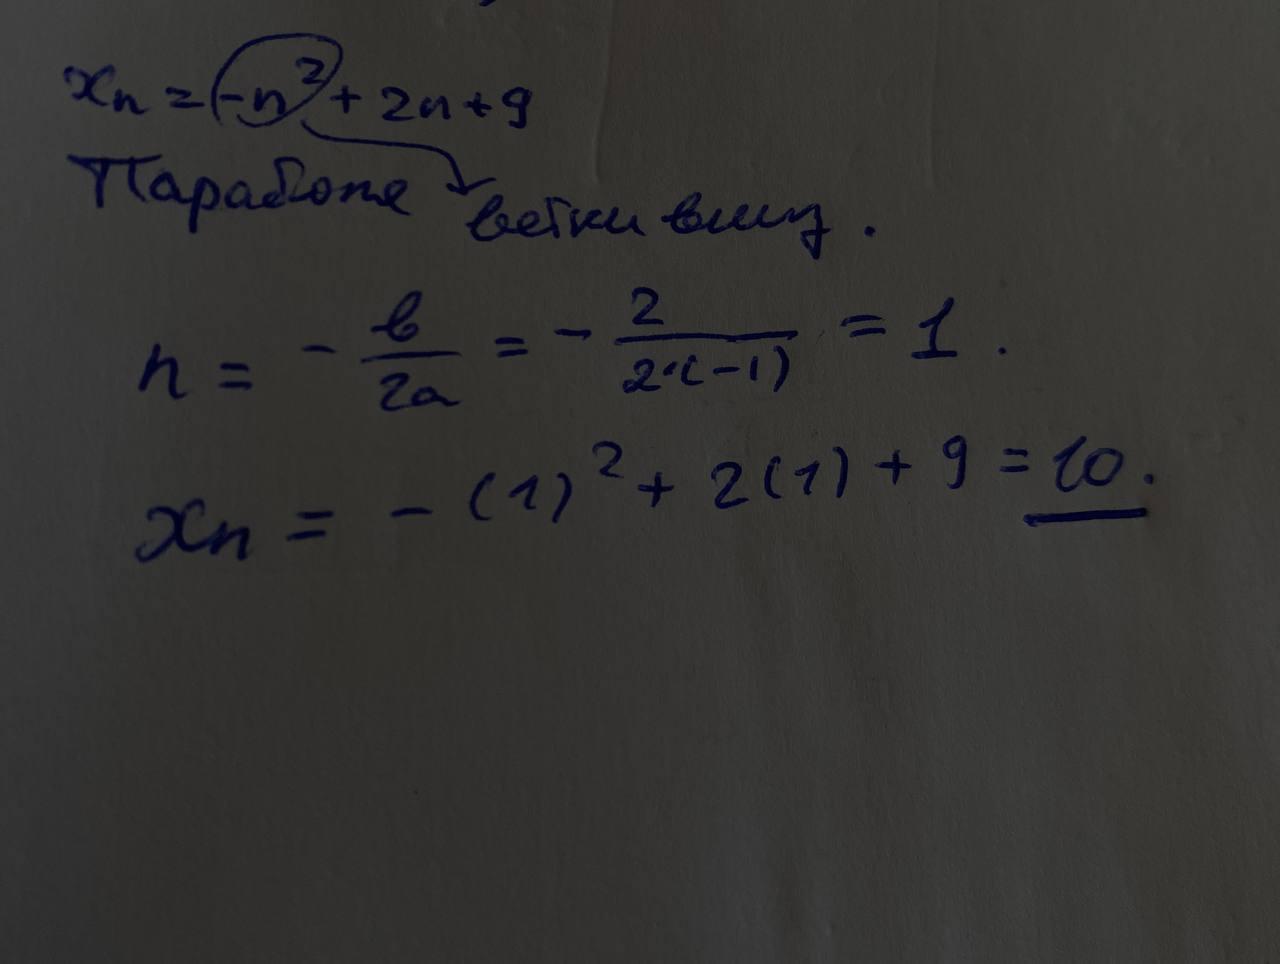 xn = -n² + 2n + 9
Парабола ветки вниз.
n = - в/2a = - 2/2·(-1) = 1.
xn = - (1)² + 2(1) + 9 = 10.